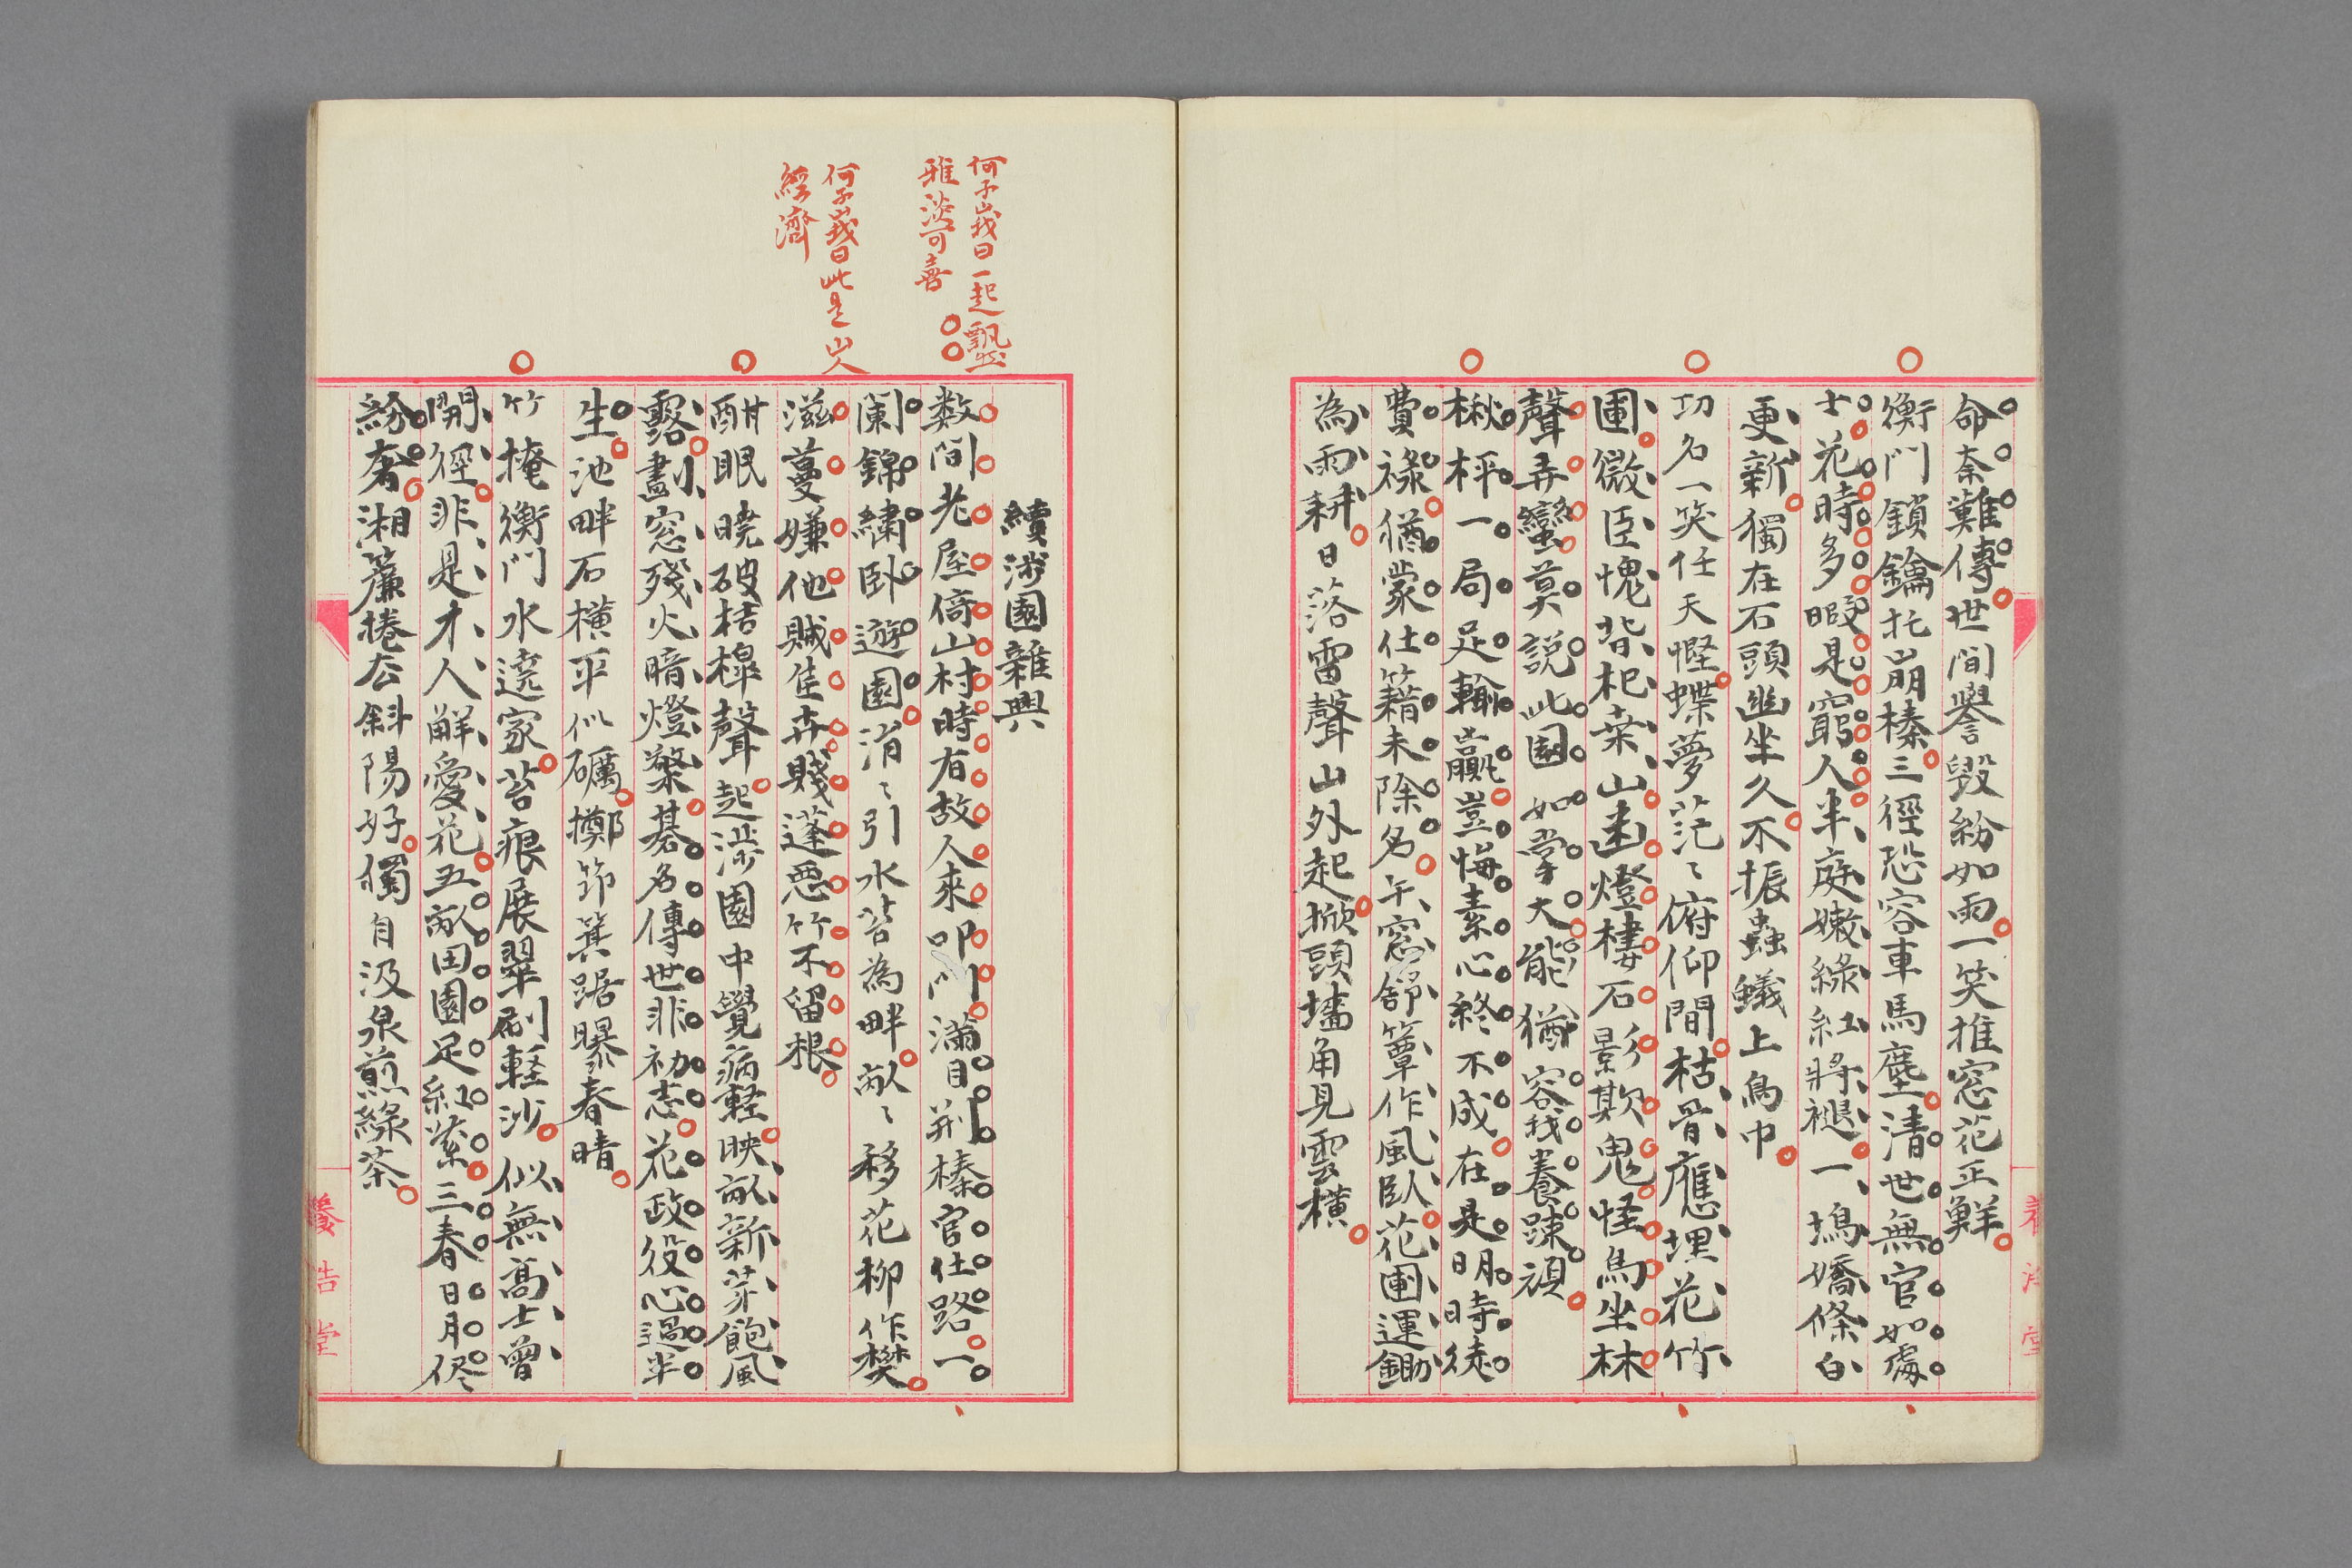 命奈難傳世間譽毀紛如雨一笑推窓花正鮮
衡門鎖鑰托崩榛三徑恐容車馬塵清世無官如處
士花時多暇是窮人半庭嫩綠紅將褪一塢嬌條白
更新獨在石頭幽坐久不振蟲蟻上烏巾
功名一笑任天慳蝶夢茫〻俯仰間枯骨應埋花竹
圃微臣愧背杞菜山遠燈棲石影欺鬼怪鳥坐林
聲弄蠻莫說此園如掌大能猶容我養踈頑
楸枰一局足輸贏豈悔素心終不成在是明時徒
費祿猶蒙仕籍未除名午窓舒簟作風臥花圃運鋤
為雨耕日落雷聲山外起掀頭墻角見雲橫
續渉園雜興
数間老屋倚山村時有故人來叩門滿目荊榛官仕路一
闌錦繡臥遊園涓〻引水芸為畔畝〻移花柳作樊
滋蔓嫌他賊佳卉賤蓬惡竹不留根
酣眠曉破桔槹聲起渉園中覺病軽映畝新芽飽風
露劃窓殘火暗燈檠碁名傳世非初志花政役心過半
生池畔石橫平似礪擲節箕踞曝春晴
竹掩衡門水遶家苔痕展翠刷軽沙似無高士曾
開徑非是才人解愛花五畝田園足紅紫三春日月俢
紛奢湘簾捲厺斜陽好獨自汲泉煎綠茶
何子峩曰一起飄然
雅淡可喜
何子峩曰此是山人
經濟
養浩堂